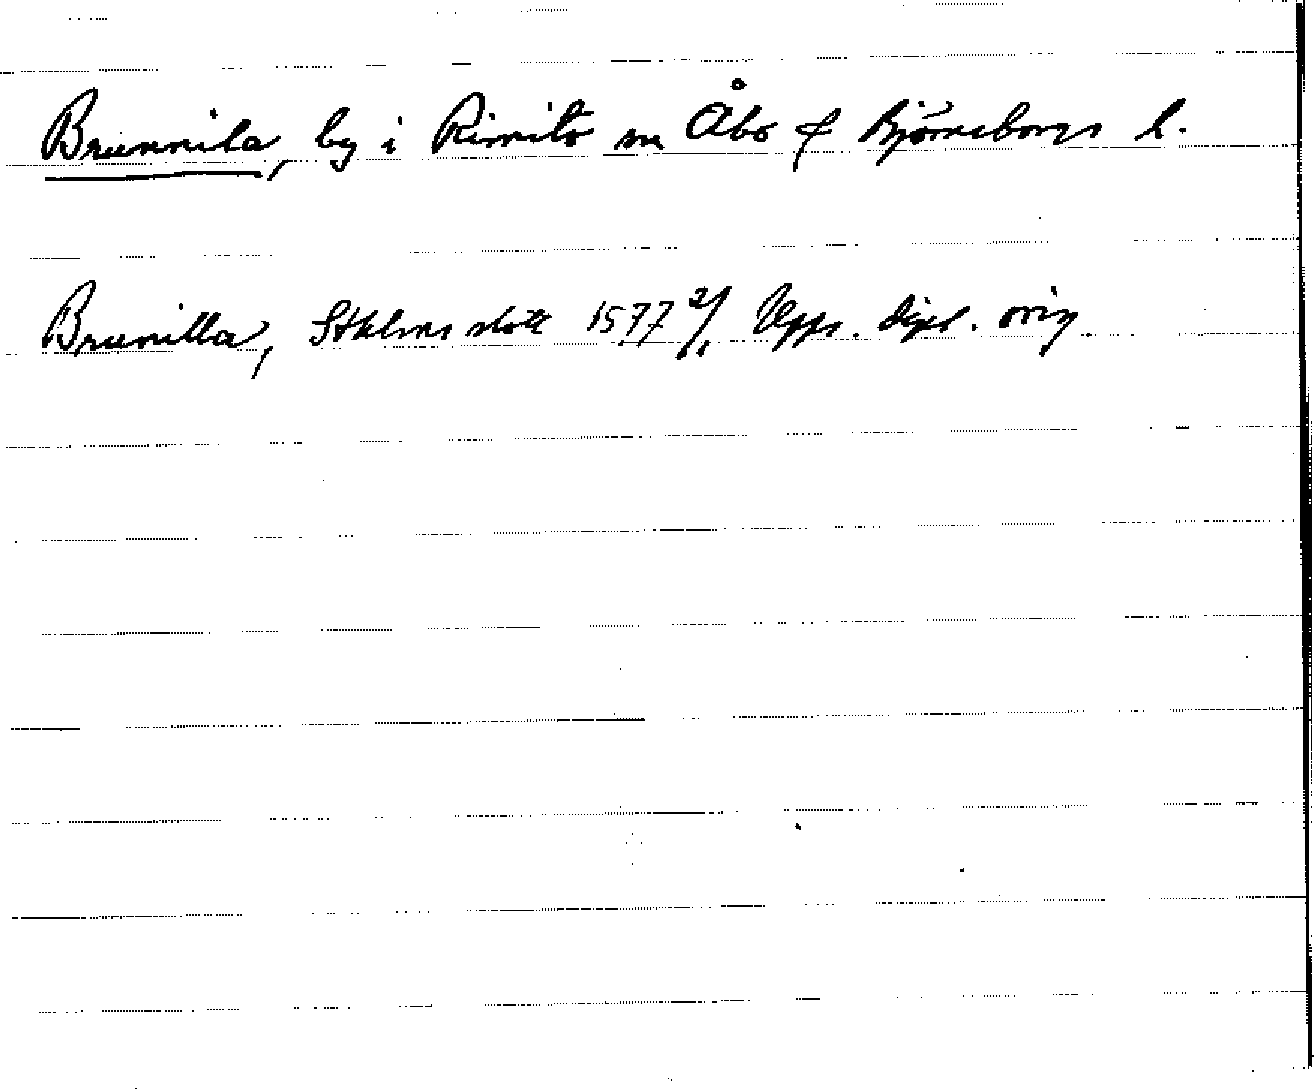 Brunnila, by i Rimito sn Åbo o Björneborgs l.
Brunilla, Sthlms slott 1577 2/1 Upps. dipl. orig